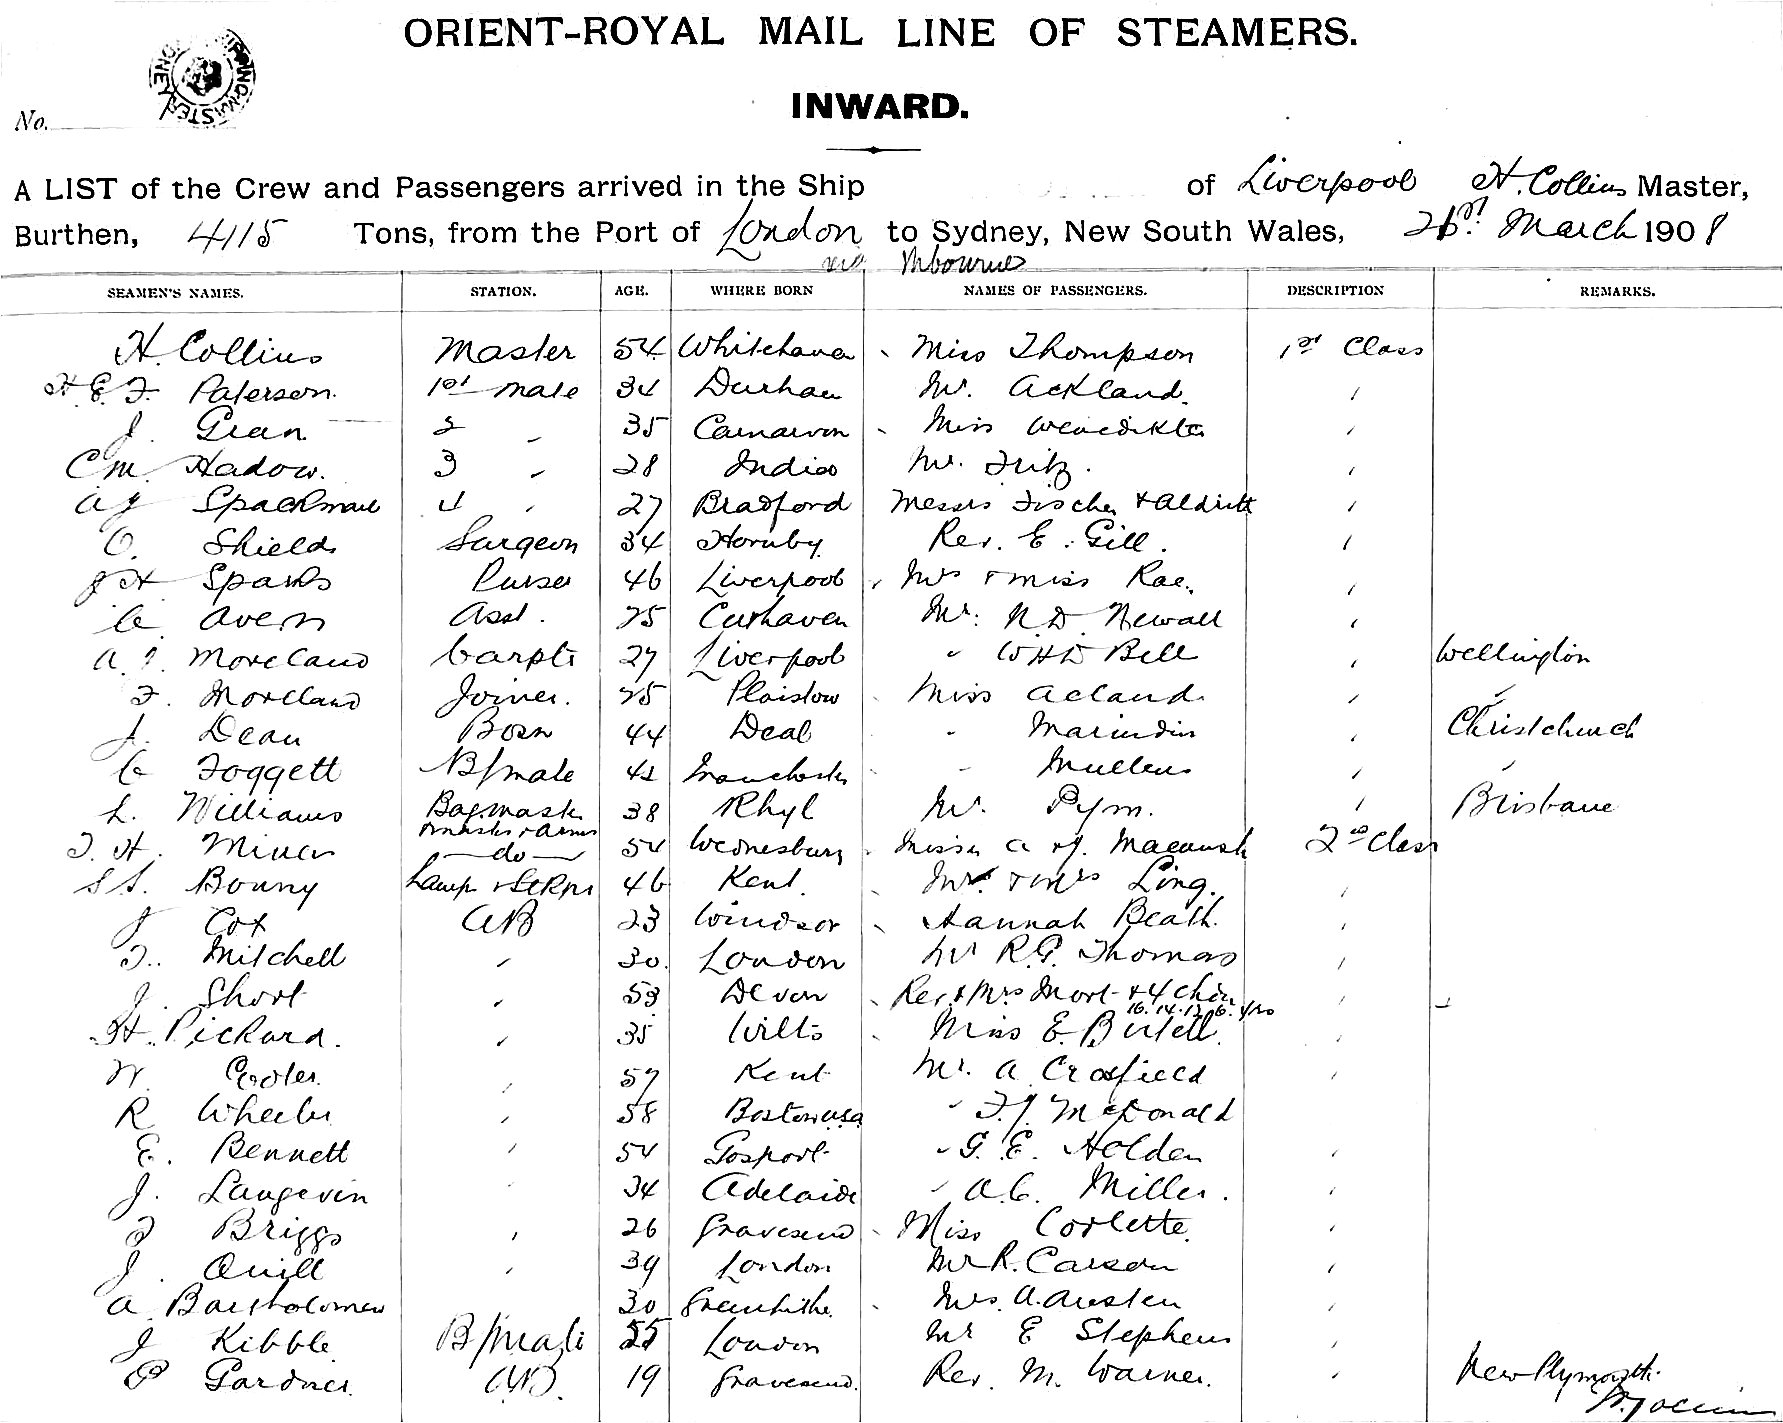 ORIENT-ROYAL MAIL LINE OF STEAMERS.
INWARD.
No.
A LIST of the Crew and Passengers arrived in the Ship of Liverpool H. Collins Master,
Burthen, 4115 Tons, from the Port of London to Sydney, New South Wales, March 1908
via Mbourne
SEAMEN'S NAMES. STATION. AGE. WHERE BORN NAMES OF PASSENGERS. DESCRIPTION REMARKS.
H Collins Master 54 Whitehaven Miss Thompson 1st Class
H E F. Paterson. 1st mate 34 Durham Mr. Ackland.
J. Gran 2 " 35 Carnarvon Miss
CM Hadow. 3 " 28 India Mr. Fritz.
A J Spackman 4 " 27 Bradford Messrs Fischer & Aldritt
O. Shields Surgeon 34 Hornby Rev. E. Gill.
J H Sparks Purser 46 Liverpool Mrs & Miss Rae.
C Avern Asst. 25 Cuxhaven Mr. N.D. Newall
A. J. Moreland Carptr 27 Liverpool " WHD Bell Wellington
F. Moreland Joiner. 25 Plaistow Miss Acland.
J. Dean Bosn 44 Deal " Marindin Christchurch
C Foggett B/mate 42 Manchester " Mullens
L. Williams Bagmastr 38 Rhyl Mr. Pym. Brisbane
master & arms
T. H. Miner do 54 Wednesbury Misses A & J. 2nd Class
S S. Bonny Lamp & 46 Kent. Mr & Mrs Ling.
J Cox AB 23 Windsor Hannah Beath.
T. Mitchell " 30. London Mr R.G. Thomas
J. Short " 53 Devon Rev & Mrs Mort & 4 chdn
16. 14. 12. 6. yrs
H. Pickard. " 35 Wilts Miss E. Birtell.
W. " 57 Kent Mr. A Croxfield
R Wheeler " 58 Boston USA " F.J. McDonald
E. Bennett " 54 Gosport " G. E. Holden
J. Langevin " 34 Adelaide " A.C. Miller.
T Briggs " 26 Gravesend Miss Corlette.
J. Quill " 39 London Mr R. Carson
A. Bartholomew 30 Greenhithe. Mrs. A. Austen
J Kibble B/mate 55 London Mr E Stephens
P Gardner. AB. 19 Gravesend. Rev. M. Warner. New Plymouth.
H. Collins